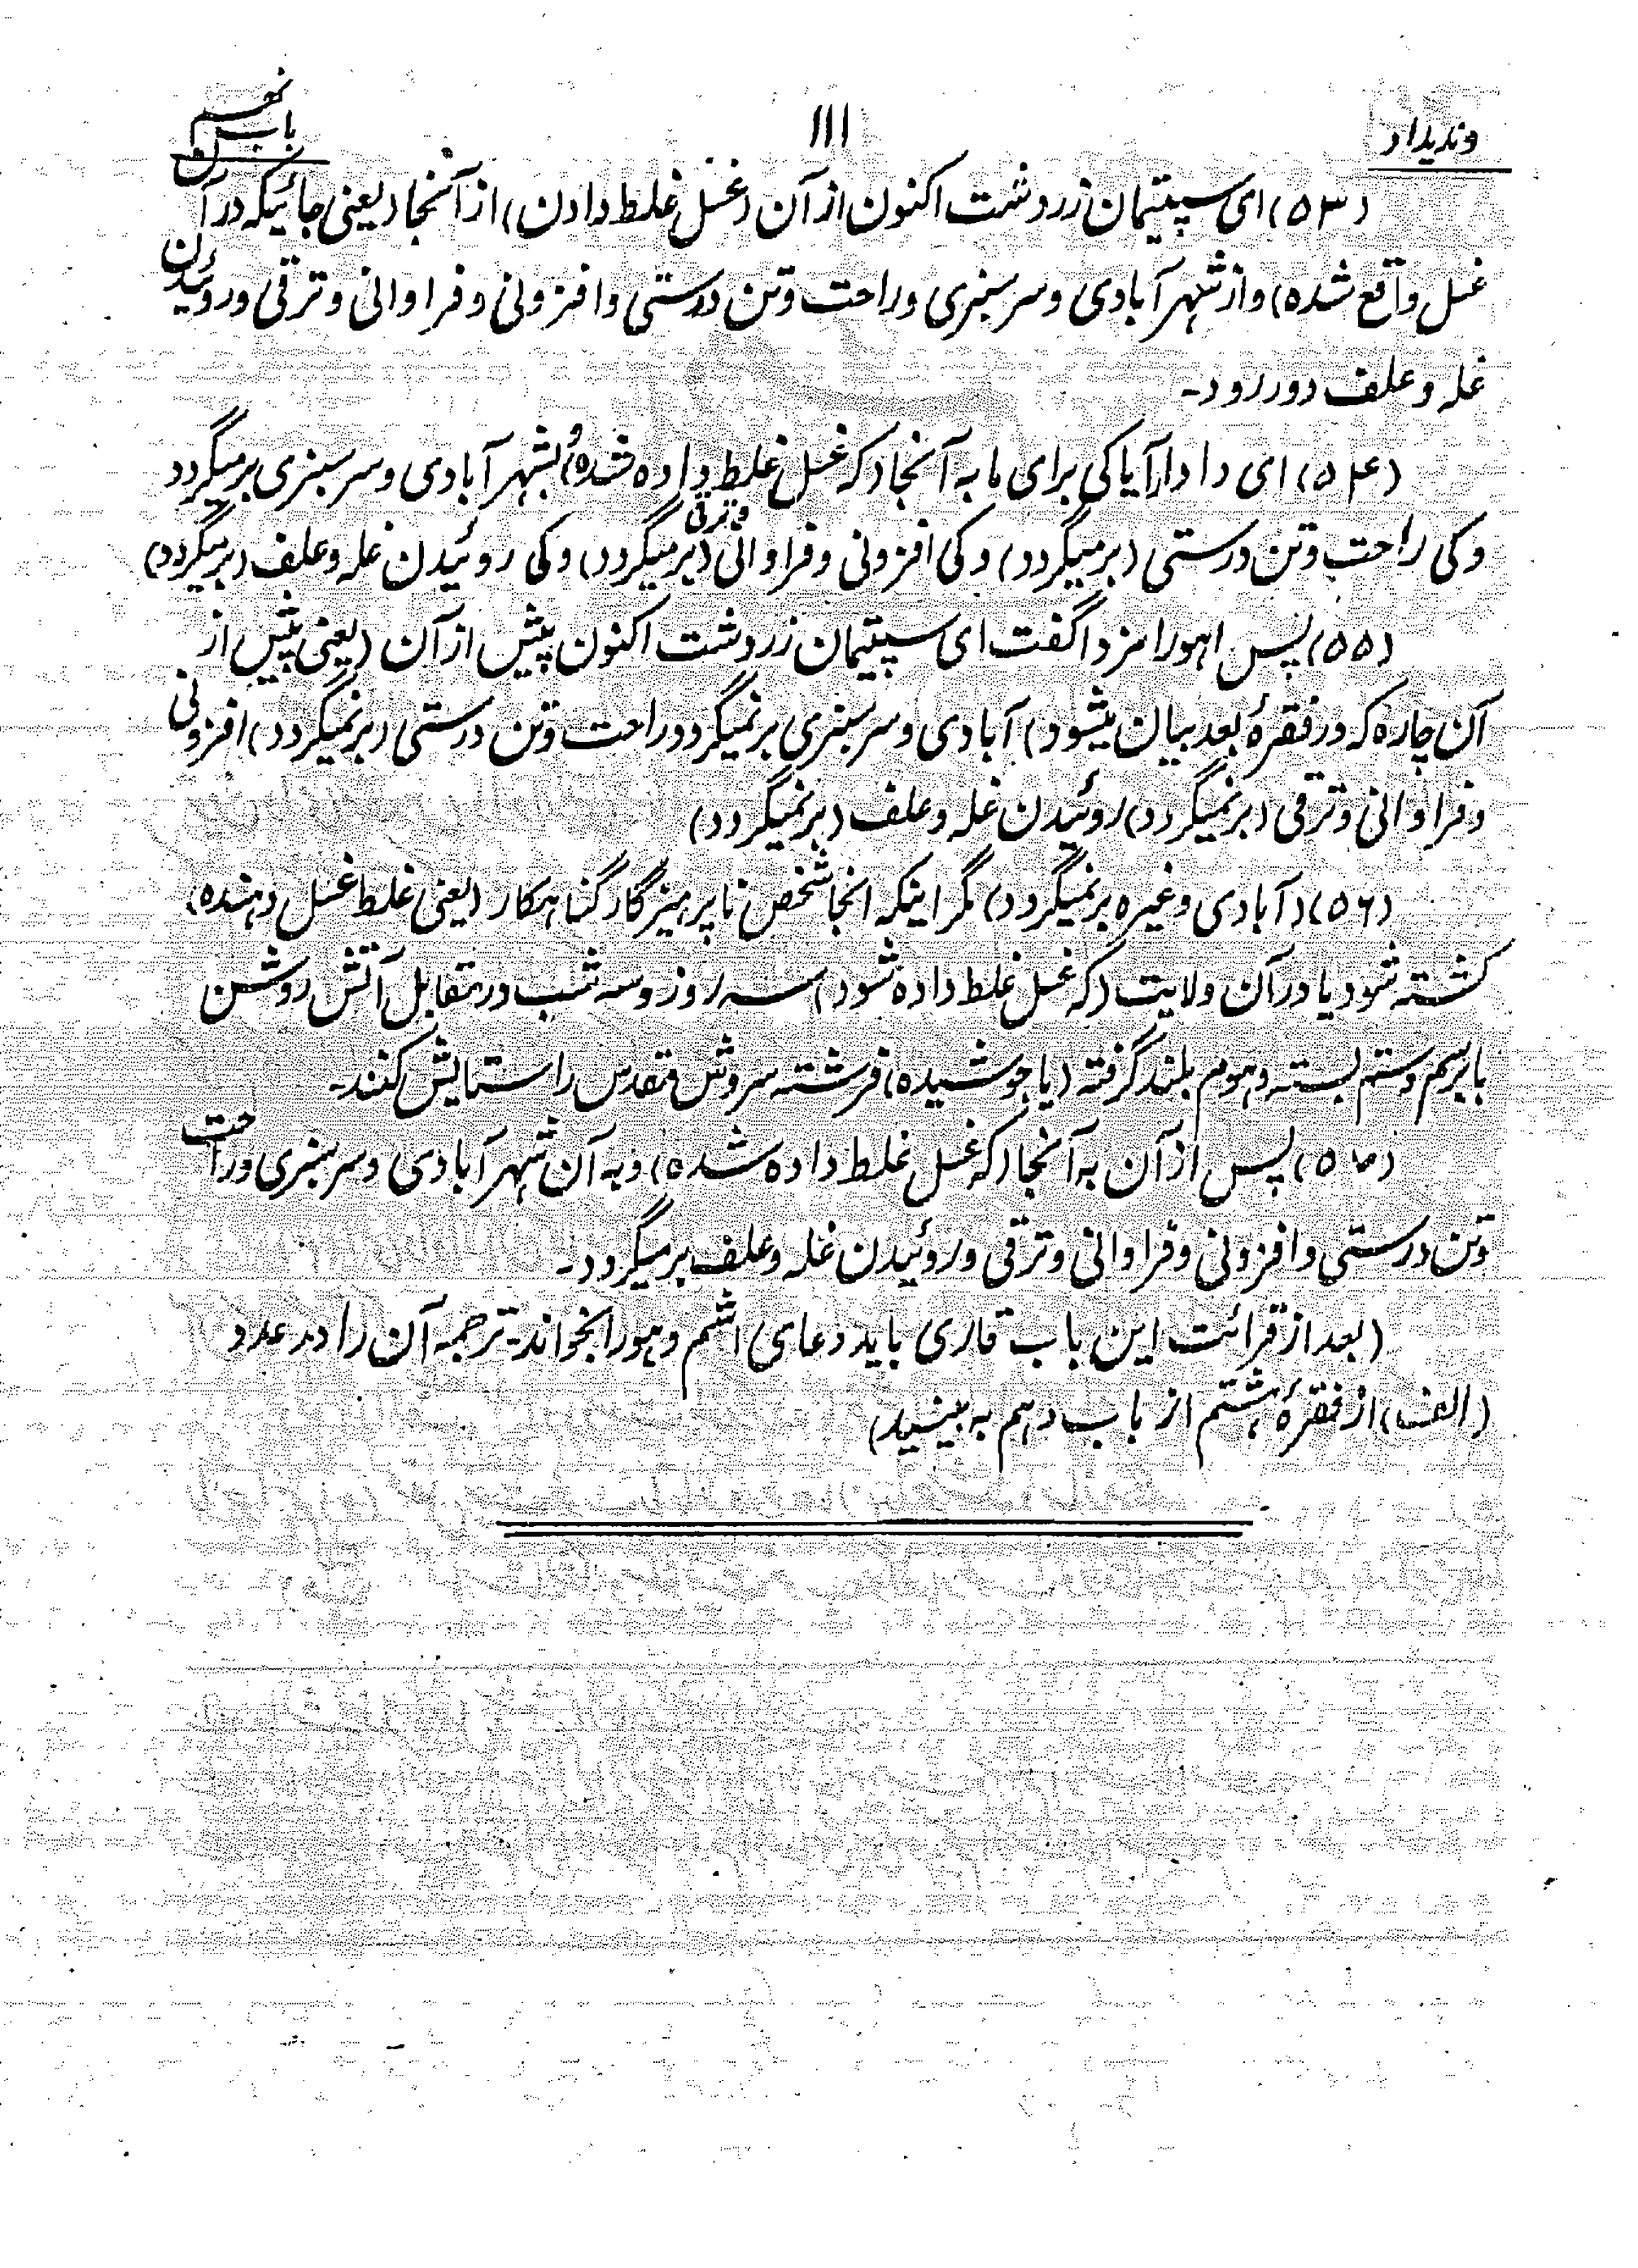 وندیداد
۱۱۱
باب نهم
(۵۳) ای سپیتمان زردشت اکنون از آن (غسل غلط دادن) از آنجا (یعنی جائیکه در آن
غسل واقع شده) و از شهر آبادی و سرسبزی و راحت و تن درستی و افزونی و فراوانی و ترقی و روئیدن
غله و علف دور رود-
(۵۴) ای دادار آیا کی برای ما به آنجا (که غسل غلط داده شده) بشهر آبادی و سرسبزی برمیگردد
و کی راحت و تن درستی (برمیگردد) و کی افزونی و فراوانی و ترقی (برمیگردد) و کی روئیدن غله و علف (برمیگردد)
(۵۵) پس اهورامزدا گفت ای سپیتمان زردشت اکنون پیش از آن (یعنی پیش از
آن چاره که در فقرهٔ بعد بیان میشود) آبادی و سرسبزی برنمیگردد راحت و تن درستی (برنمیگردد) افزونی
و فراوانی و ترقی (برنمیگردد) روئیدن غله و علف (برنمیگردد)
(۵۶) (آبادی و غیره برنمیگردد) مگر اینکه انجا شخص ناپرهیزگار گناهکار (یعنی غلط غسل دهنده)
کشته شود یا در آن ولایت (که غسل غلط داده شود) سه روز و سه شب در مقابل آتش روشن
با برسم وستهم بسته و هوم بلند گرفته (یا جوشیده) فرشته سروش مقدس را ستایش کنند-
(۵۷) پس از آن به آنجا (که غسل غلط داده شده) و به آن شهر آبادی و سرسبزی و راحت
و تن درستی و افزونی و فراوانی و ترقی و روئیدن غله و علف برمیگردد-
(بعد از قرائت این باب قاری باید دعای اشم وهو را بخواند- ترجمه آن را در عدد
(الف) از فقرهٔ هشتم از باب دهم به بینید)